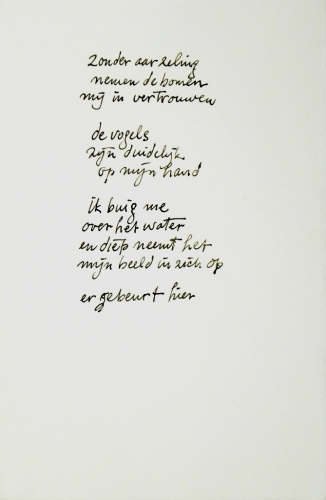 zonder aarzeling
nemen de bomen
mij in vertrouwen
de vogels
zijn duidelijk
op mijn hand
ik buig me
over het water
en diep neemt het
mijn beeld in zich op
er gebeurt hier